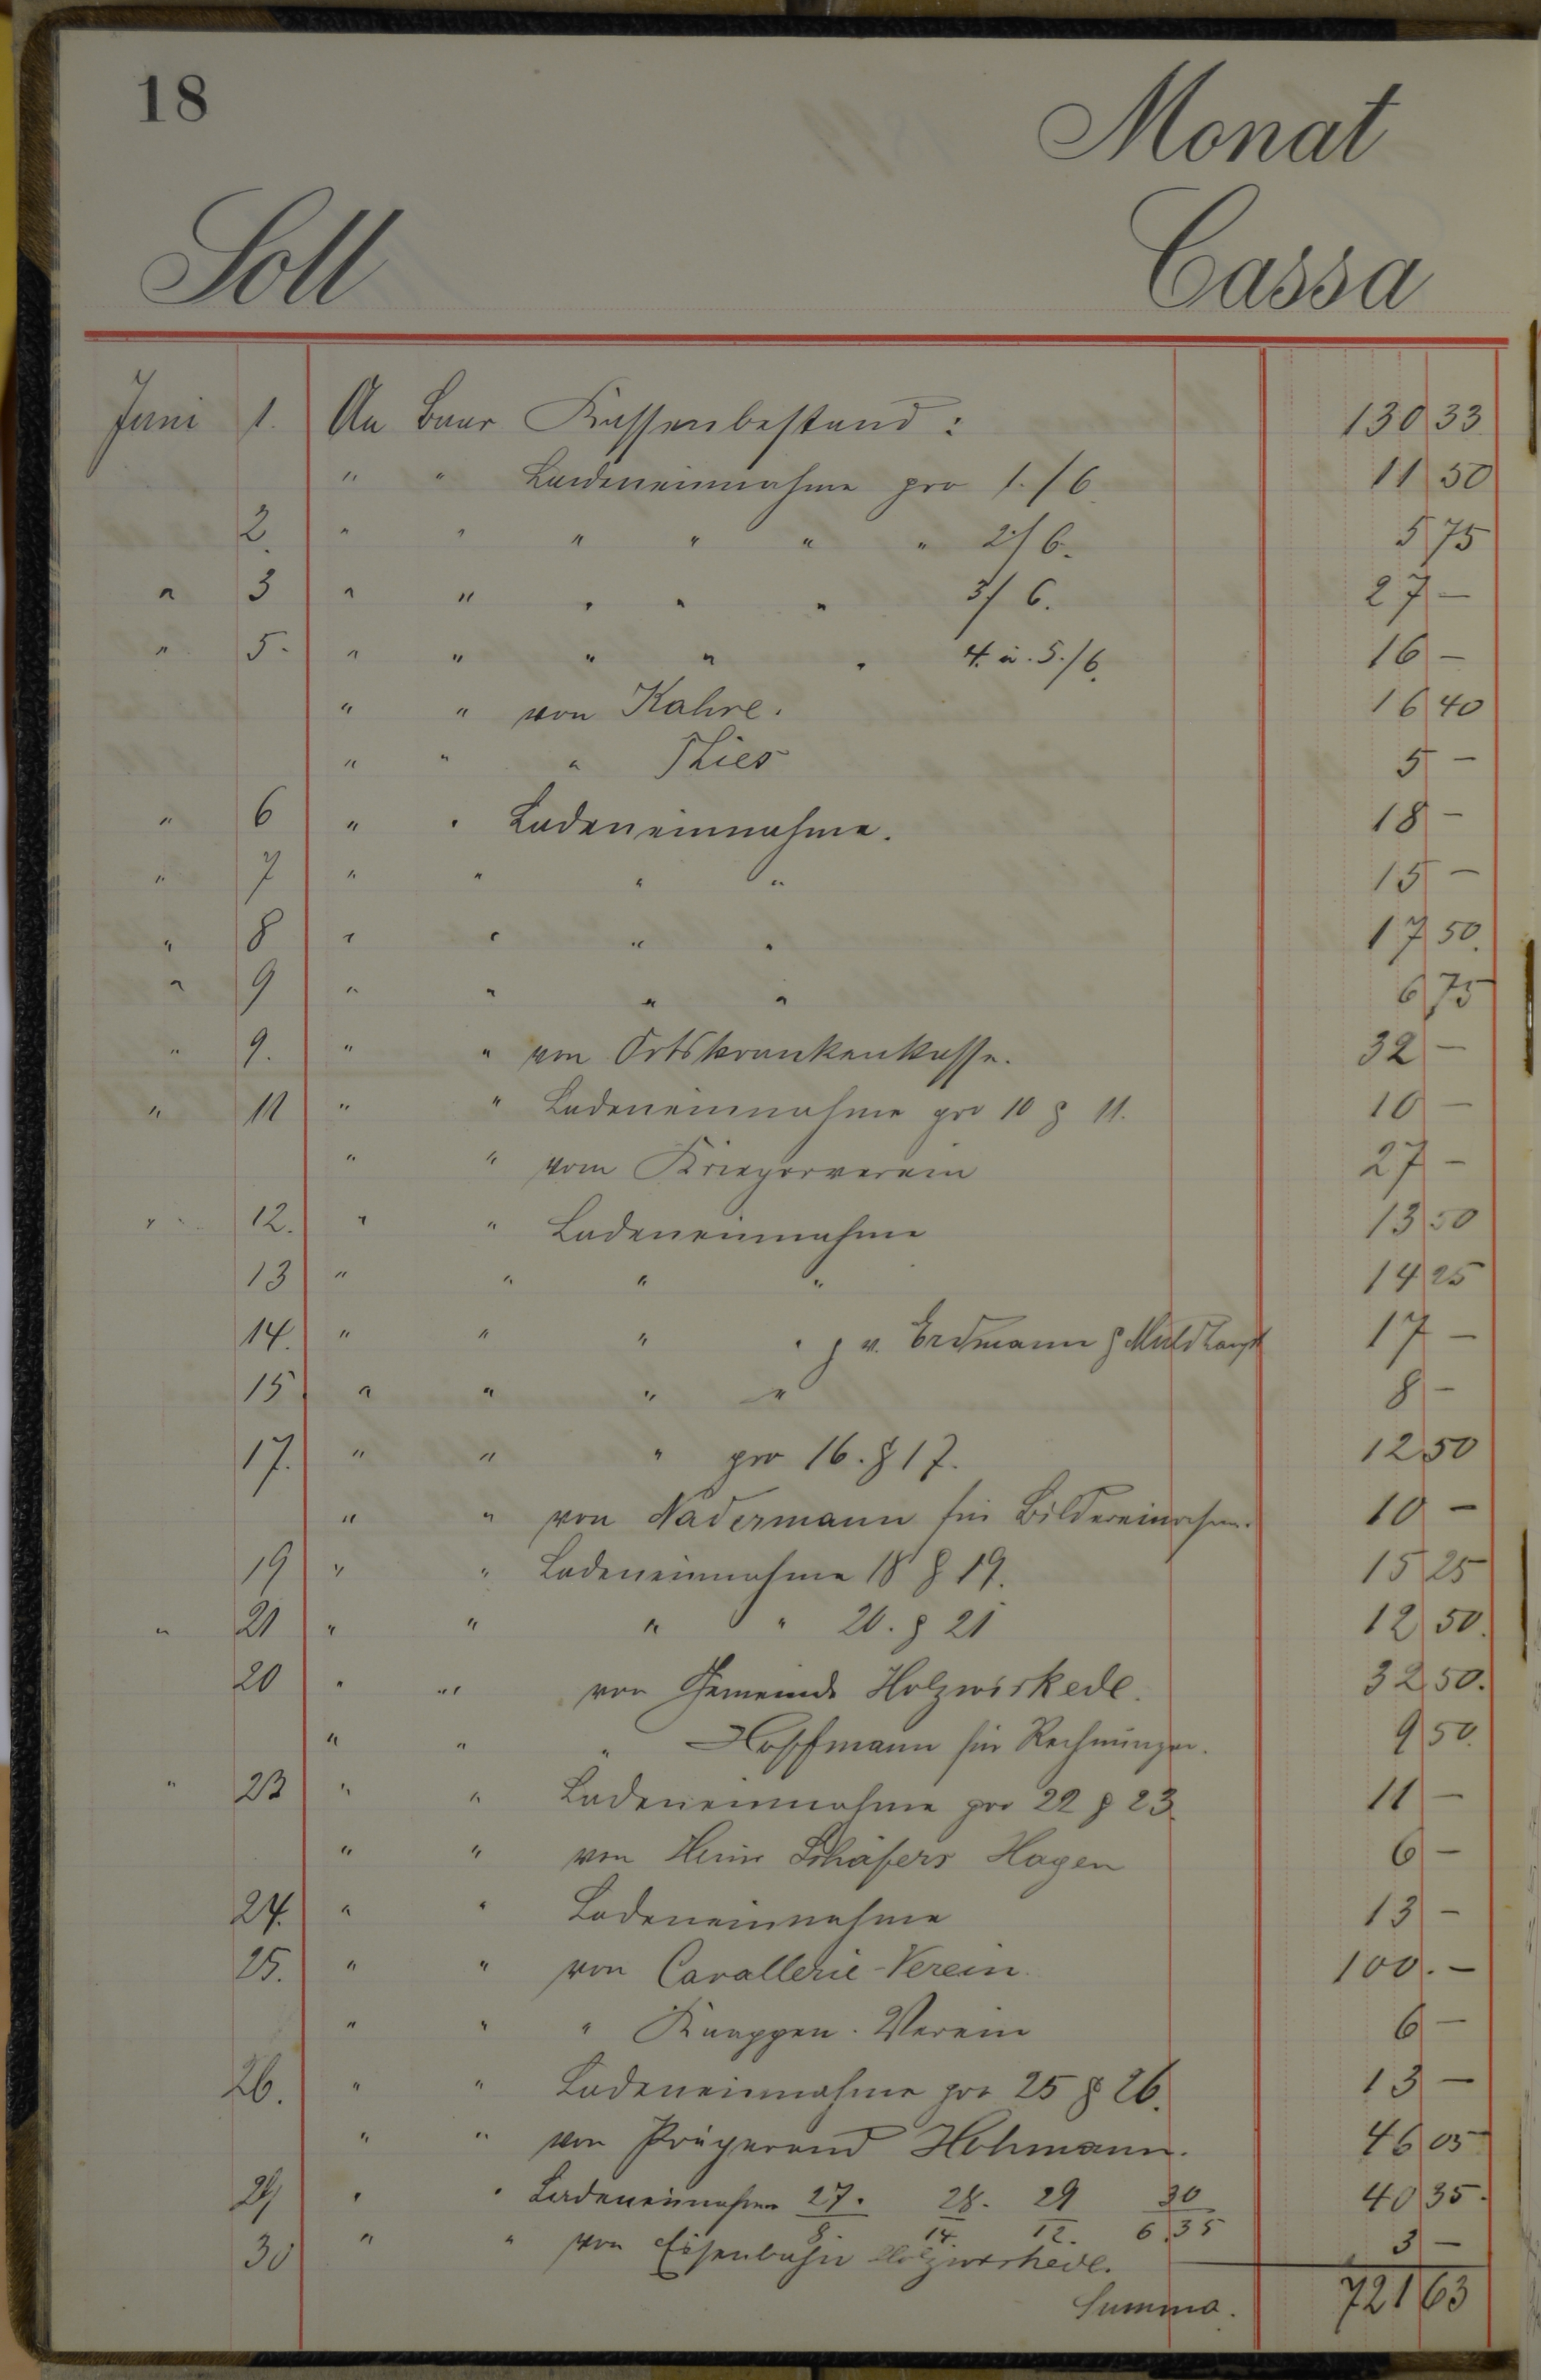 18
Monat
Soll Cassa
Juni 1. An Baar Kassenbestand : 130 33
" " Ladeneinnahme pro 1./6. 11 50
2. " " " " " " 2/6. 5 75
" 3 " " " " " 3/6. 27 —
" 5. " " " " " 4. u. 5./6. 16 —
" " von Kahre. 16 40
" " " Thies 5 —
" 6 " " Ladeneinnahme. 18 —
" 7 " " " " 15 —
" 8 " " " " 17 50.
" 9 " " " " 6 75
" 9. " " von Ortskrankenkasse. 32 —
" 11 " " Ladeneinnahme pro 10 & 11. 10 —
" " vom Kriegerverein 27 —
" 12. " " Ladeneinnahme 13 50
13 " " " " 14 25
14. " " " " & v. Erdmann & 17 —
15 " " " " 8 —
17. " " " pro 16. & 17. 12 50
" " von Nadermann für Bildereinrahm. 10 —
19 " " Ladeneinnahme 18 & 19. 15 25
" 21 " " " " 20. & 21 12 50.
20 " " von Gemeinde Holzwickede. 32 50.
" " " Hoffmann für Rechnungen. 9 50.
" 23 " " Ladeneinnahme pro 22 & 23 11 —
" " von Heinr Schäfers Hagen 6 —
24. " " Ladeneinnahme 13 —
25. " " von Cavallerie-Verein. 100. —
" " " Knappen. Verein 6 —
26. " " Ladeneinnahme pro 25 & 26. 13 —
" " von Hohmann. 46 05
29 " " Ladeneinnahme 27. 28. 29 30 40 35.
8. 14. 12. 6,35
30 " " von Eisenbahn Holzwickede. 3 —
Summa. 721 63